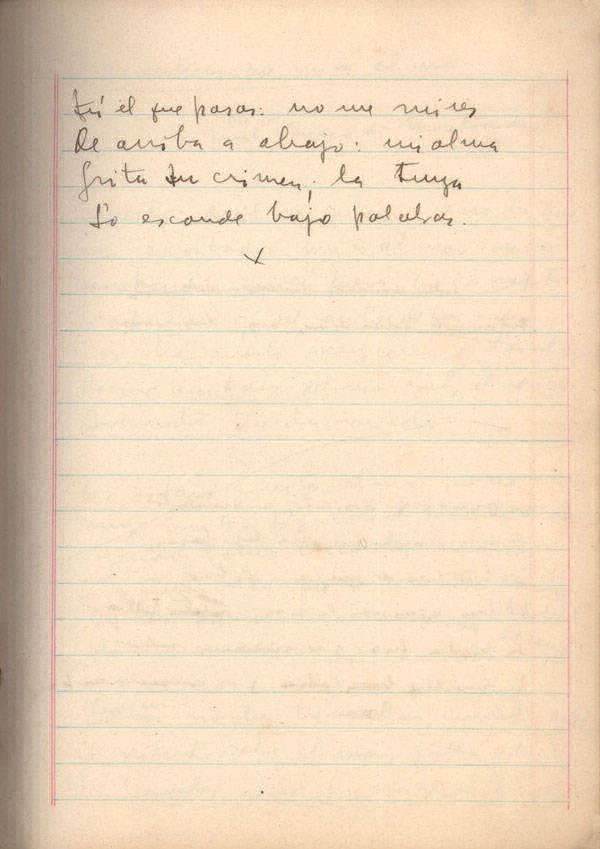 tú el que pasas: no me mires
De arriba a abajo: mi alma
Grita tu crimen; la tuya
Lo esconde bajo palabras.
x